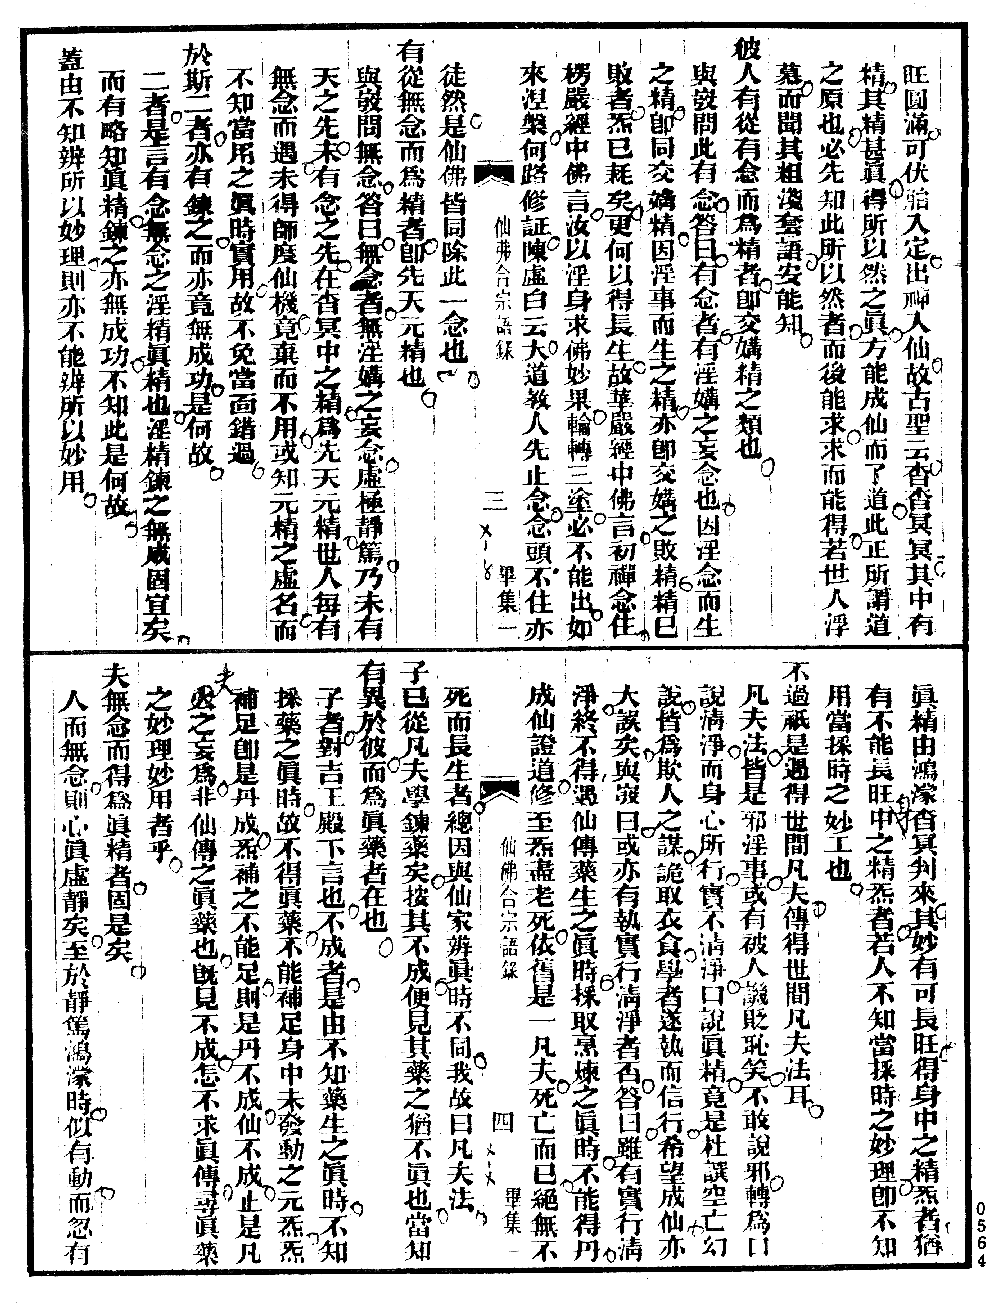 旺圓滿可伏胎入定出神人仙故古聖云杳杳冥冥其中有
精其精甚眞得所以然之眞方能成仙而了道此正所謂道
之原也必先知此所以然者而後能求求而能得若世人浮
慕而聞其粗淺套語安能知
彼人有從有念而爲精者卽交媾精之類也
與敱問此有念答曰有念者有淫媾之妄念也因淫念而生
之精卽同交媾精因淫事而生之精亦卽交媾之敗精精已
敗者炁已耗矣更何以得長生故華嚴經中佛言初禪念住
楞嚴經中佛言汝以淫身求佛妙果輪轉三塗必不能出如
來涅槃何路修証陳虛白云大道教人先止念念頭不住亦
仙佛合宗語錄
三
畢集一
徒然是仙佛皆同除此一念也
有從無念而爲精者卽先天元精也
與敱問無念答曰無念者無淫媾之妄念虛極靜篤乃未有
天之先未有念之先在杳冥中之精爲先天元精世人每有
無念而遇未得師度仙機竟棄而不用或知元精之虛名而
不知當用之眞時實用故不免當面錯過
於斯二者亦有鍊之而亦竟無成功是何故
二者是言有念無念之淫精眞精也淫精鍊之無成固宜矣
而有略知眞精鍊之亦無成功不知此是何故
蓋由不知辨所以妙理則亦不能辨所以妙用
眞精由鴻濛杳冥判來其妙有可長旺得身中之精炁者猶
有不能長旺身中之精炁者若人不知當採時之妙理卽不知
用當採時之妙工也
不過祇是遇得世間凡夫傳得世間凡夫法耳
凡夫法皆是邪淫事或有被人譏貶恥笑不敢說邪轉爲口
說淸淨而身心所行實不淸淨口說眞精竟是杜譔空亡幻
說皆爲欺人之謀詭取衣食學者遂執而信行希望成仙亦
大誤矣與敱曰或亦有執實行淸淨者否答曰雖有實行淸
淨終不得遇仙傳藥生之眞時採取烹煉之眞時不能得丹
成仙證道修至炁盡老死依舊是一凡夫死亡而已絕無不
仙佛合宗語錄
四
畢集一
死而長生者總因與仙家辨眞時不同我故曰凡夫法
子已從凡夫學鍊藥矣按其不成便見其藥之猶不眞也當知
有異於彼而爲眞藥者在也
子者對吉王殿下言也不成者是由不知藥生之眞時不知
採藥之眞時故不得眞藥不能補足身中未發動之元炁炁
補足卽是丹成炁補之不能足則是丹不成仙不成止是凡
夫之妄爲非仙傳之眞藥也旣見不成怎不求眞傳尋眞藥
之妙理妙用者乎
夫無念而得爲眞精者固是矣
人而無念則心眞虛靜矣至於靜篤鴻濛時似有動而忽有
0564